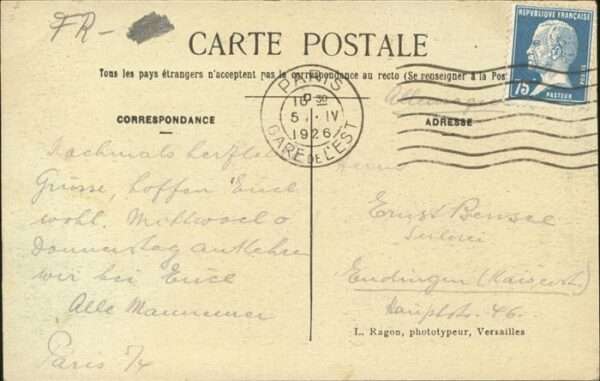 FR-
CARTE POSTALE
Tous les pays étrangers n'acceptent pas la correspondance au recto (Se renseigner à la Pos
RÉPUBLIQUE FRANÇAISE
75
PASTEUR
POSTES
PARIS
16 30
5 - IV
1926
GARE DE L'EST
CORRESPONDANCE
Nochmals herzlichste
Grüsse, hoffen Euch
wohl. Mittwoch o
Donnerstag
wir bei Euch
Alle
Paris 5/4
Allemagne
ADRESSE
Herrn
Ernst
Endingen (Kaiserst.)
Hauptstr. 46.
L. Ragon, phototypeur, Versailles